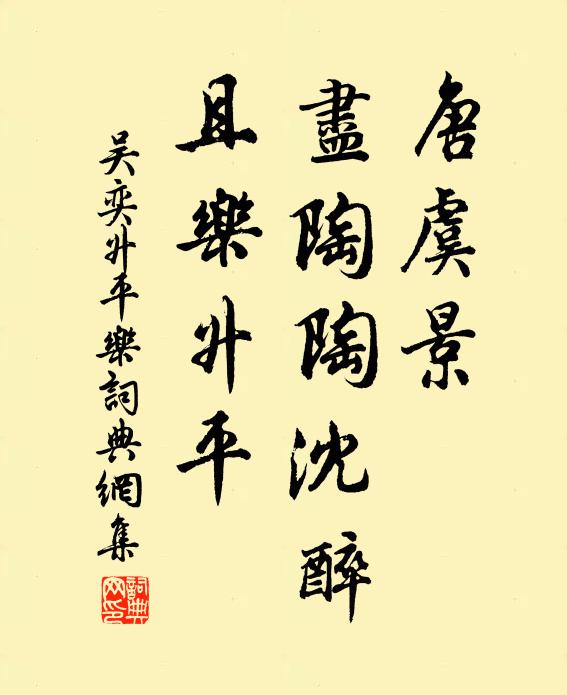 唐虞景
盡陶陶沈醉
且樂升平
吳奕升平樂詞典網集
詞典网印